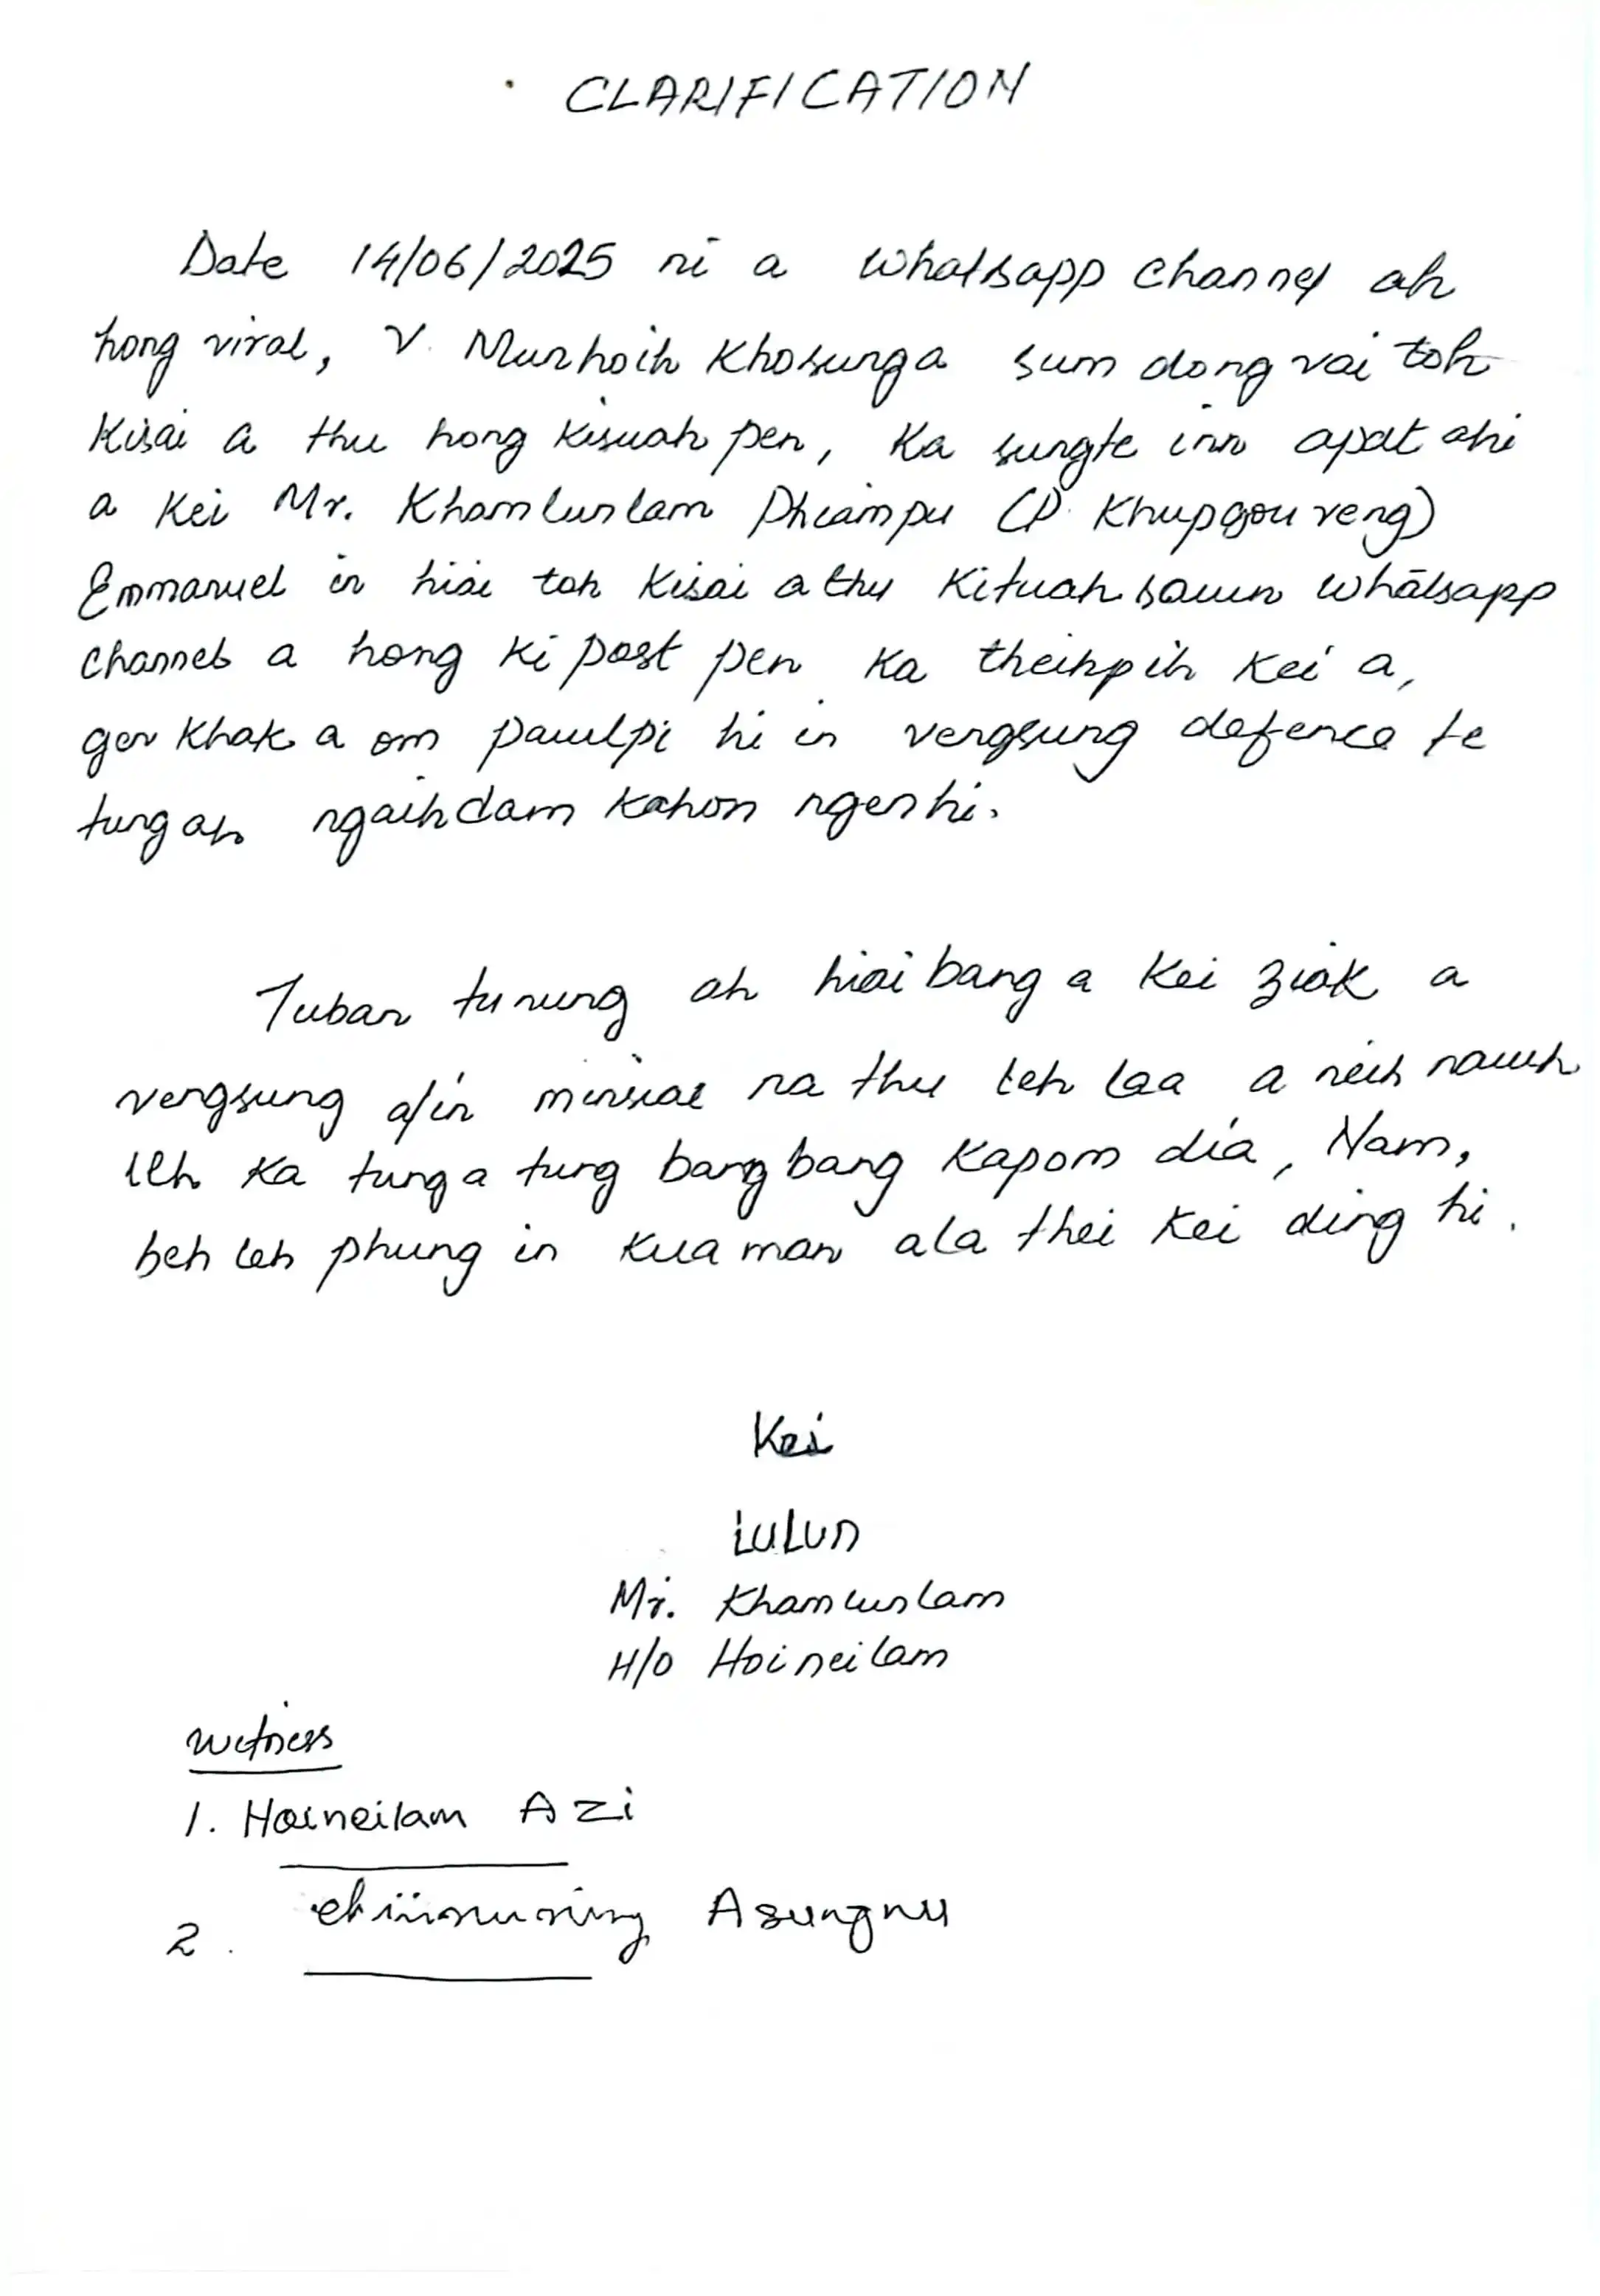 CLARIFICATION
Date 14/06/2025 ni a Whatsapp channel ah
hong viral, V. Munhoih Khosunga sum dong vai toh
Kisai a thu hong kisuah pen, Ka sungte inn apat ahi
a Kei Mr. Khamlunlam Phiampu (P. Khupgou veng)
Emmanuel in hiai toh Kisai a thu Kituah sawn Whatsapp
channel a hong ki post pen Ka theihpih Kei a,
gen khak a om pawlpi hi in vengsung defence te
tungah ngaihdam kahon ngen hi.
Tuban tunung ah hiai bang a Kei ziak a
vengsung a/in minsiat na thu leh laa a neih nawnh
leh Ka tung a tung bang bang Kapom dia, Nam,
beh leh phung in Kua man ala thei Kei ding hi.
Kei
LULUN
Mr. Khamlunlam
H/O Hoineilam
Witness
1. Hoineilam Azi
2. Asungnu